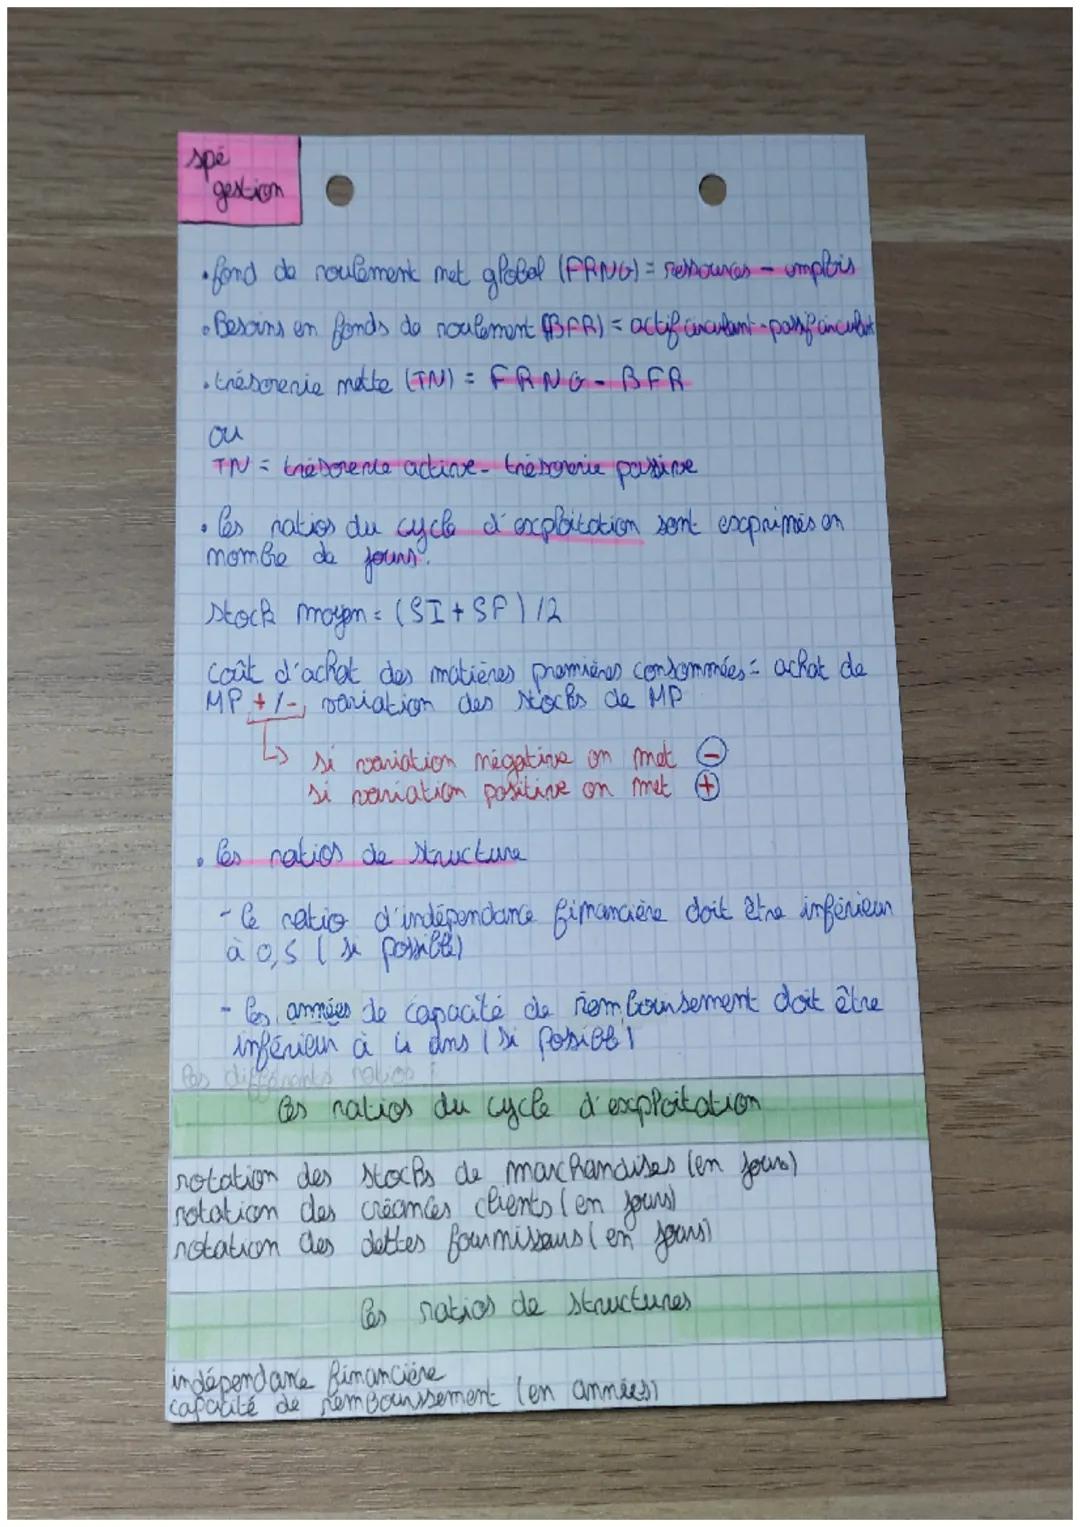 spé
gestion
• fond de roulement net global (FRNG) = ressources - emplois
• Besoins en fonds de roulement (BFR) = actif circulant - passif circulant
• trésorerie nette (TN) = FRNG - BFR
ou
TN = trésorerie active - trésorerie passive
• les ratios du cycle d'exploitation sont exprimés en
nombre de jours.
stock moyen = (SI + SF) / 2
coût d'achat des matières premières consommées = achat de
MP + / - variation des stocks de MP
↳ si variation négative on met ⊖
si variation positive on met ⊕
• les ratios de structure
- le ratio d'indépendance financière doit être inférieur
à 0,5 (si possible)
- les années de capacité de remboursement doit être
inférieur à 4 ans (si possible)
les différents ratios :
les ratios du cycle d'exploitation
rotation des stocks de marchandises (en jours)
rotation des créances clients (en jours)
rotation des dettes fournisseurs (en jours)
les ratios de structures
indépendance financière
capacité de rembourssement (en années)